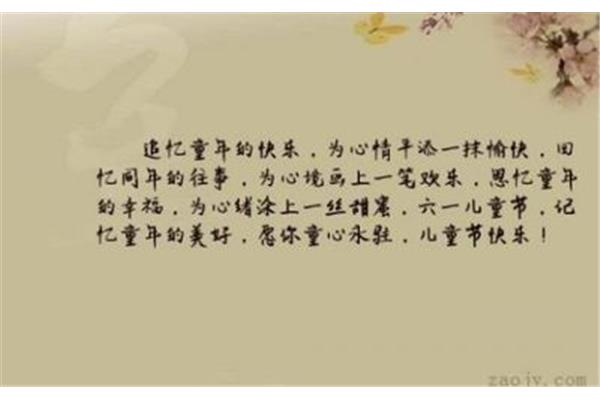 追忆童年的快乐，为心情平添一抹愉快，回
忆同年的往事，为心境画上一笔欢乐，思忆童年
的幸福，为心绪涂上一丝甜蜜，六一儿童节，记
忆童年的美好，愿你童心永驻，儿童节快乐！
zaojv.com